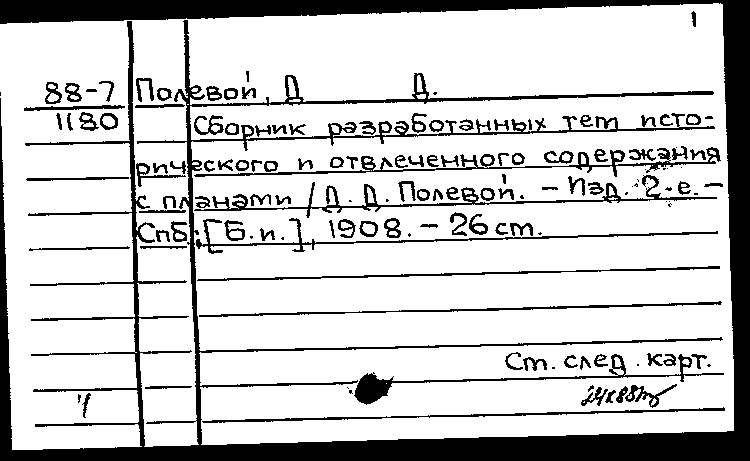 1
88-7 Полевой, Д Д.
1180 Сборник разработанных тем исто-
рического и отвлеченного содержания
с планами / Д. Д. Полевой. - Изд. 2-е. -
Спб.: [Б. и.], 1908. - 26 ст.
Ст. след. карт.